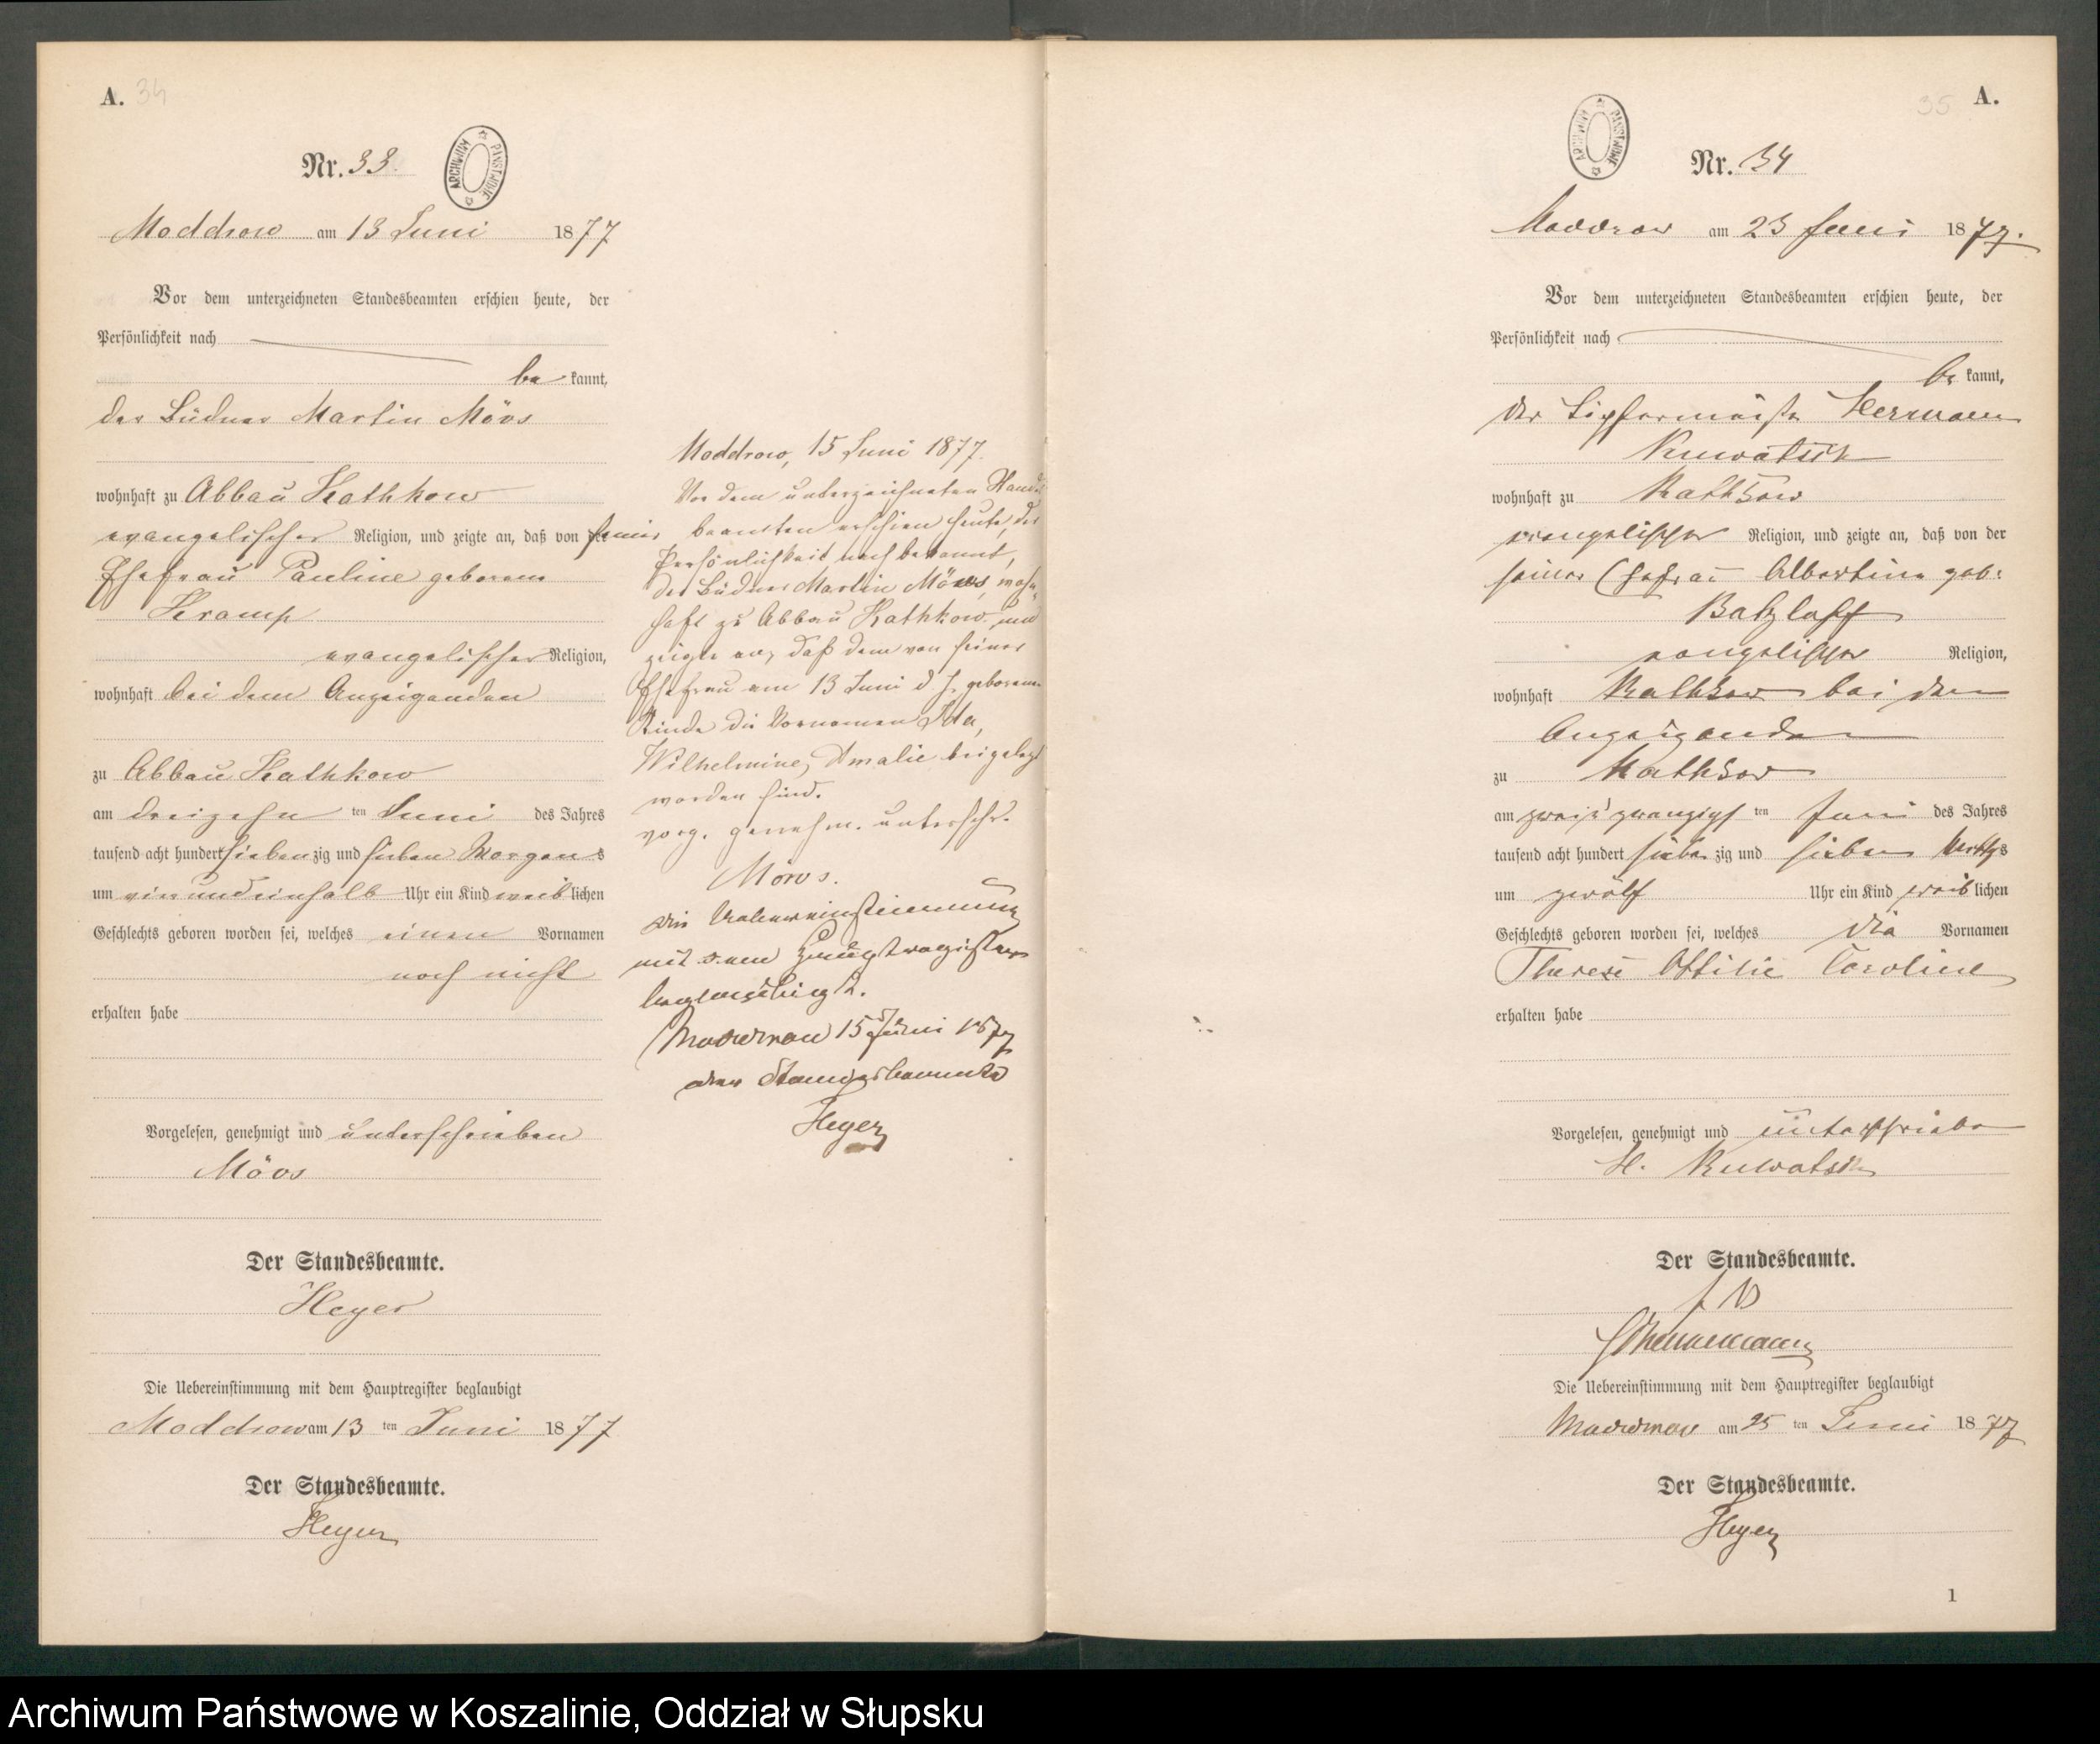 A. 34
Nr. 33.
ARCHIWUM PAŃSTWOWE
Moddrow am 13 Juni 1877
Vor dem unterzeichneten Standesbeamten erschien heute, der
Persönlichkeit nach
be kannt,
der Büdner Martin Mövs
wohnhaft zu Abbau Kathkow
evangelischer Religion, und zeigte an, daß von der seiner
Ehefrau Pauline geborene
Kramp
evangelischer Religion,
wohnhaft bei dem Anzeigenden
zu Abbau Kathkow
am dreizehn ten Juni des Jahres
tausend acht hundert siebenzig und sieben Morgens
um einundeinhalb Uhr ein Kind weiblichen
Geschlechts geboren worden sei, welches einen Vornamen
noch nicht
erhalten habe
Vorgelesen, genehmigt und unterschrieben
Mövs
Der Standesbeamte.
Heyer
Die Uebereinstimmung mit dem Hauptregister beglaubigt
Moddrow am 13 ten Juni 1877
Der Standesbeamte.
Heyer
Moddrow, 15 Juni 1877.
Vor dem unterzeichneten Stands
beamten erschien heute, der
Persönlichkeit nach bekannt,
der Büdner Martin Mövs, wohn-
haft zu Abbau Kathkow und
zeigte an, daß dem von seiner
Ehefrau am 13 Juni d. J. geborenen
Kinde die Vornamen Ida,
Wilhelmine, Amalie beigelegt
worden sind.
vorg. genehm. unterschr.
Mövs.
Die Uebereinstimmung
mit dem Hauptregister
beglaubigt.
Moddrow 15 Juni 1877
der Standesbeamte
Heyer
35 A.
ARCHIWUM PAŃSTWOWE
Nr. 34
Moddrow am 23 Juni 1877.
Vor dem unterzeichneten Standesbeamten erschien heute, der
Persönlichkeit nach
be kannt,
der Herrmann
Kuwatsch
wohnhaft zu Kathkow
evangelischer Religion, und zeigte an, daß von der
seiner Ehefrau Albertine geb.
Batzlaff
evangelischer Religion,
wohnhaft Kathkow bei dem
Anzeigenden
zu Kathkow
am zwei u zwanzigsten Juni des Jahres
tausend acht hundert siebenzig und sieben Mittags
um zwölf Uhr ein Kind weiblichen
Geschlechts geboren worden sei, welches die Vornamen
Therese Ottilie Caroline
erhalten habe
Vorgelesen, genehmigt und unterschrieben
H. Kuwatsch
Der Standesbeamte.
Die Uebereinstimmung mit dem Hauptregister beglaubigt
Moddrow am 25 ten Juni 1877
Der Standesbeamte.
Heyer
1
Archiwum Państwowe w Koszalinie, Oddział w Słupsku